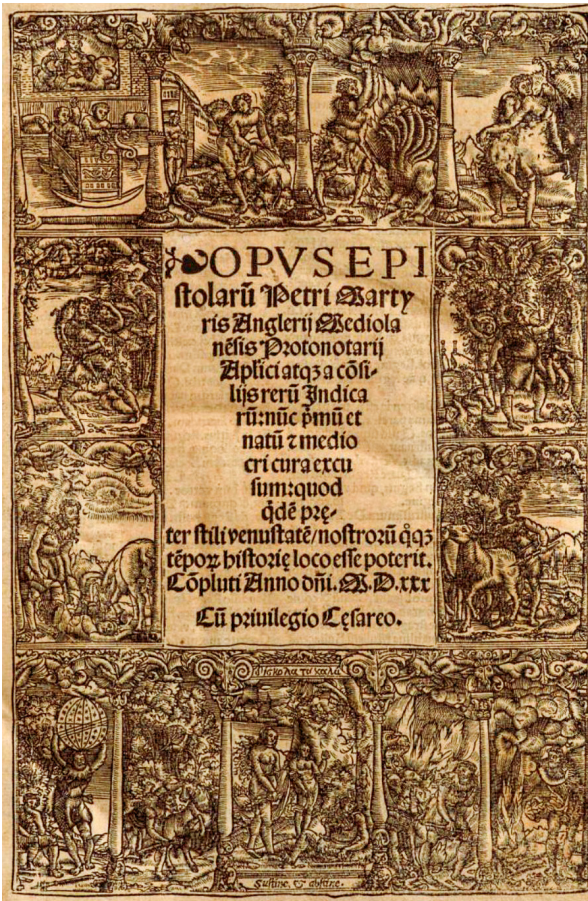 OPVS EPI
stolarũ Petri Marty
ris Anglerij Mediola
nẽsis Protonotarij
Aplici atqʒ a cõsi-
lijs rerũ Indica
rũ: nũc pͥmũ et
natũ ⁊ medio
cri cura excu
sum: quod
qͥdẽ prę-
ter stili venustatẽ/ nostrorũ qͦqʒ
tẽporꝝ historię loco esse poterit.
Cõpluti Anno dñi. M.D.xxx
Cũ priuilegio Cęsareo.
Δύσκολα τὰ καλά
Sustine, & abstine.